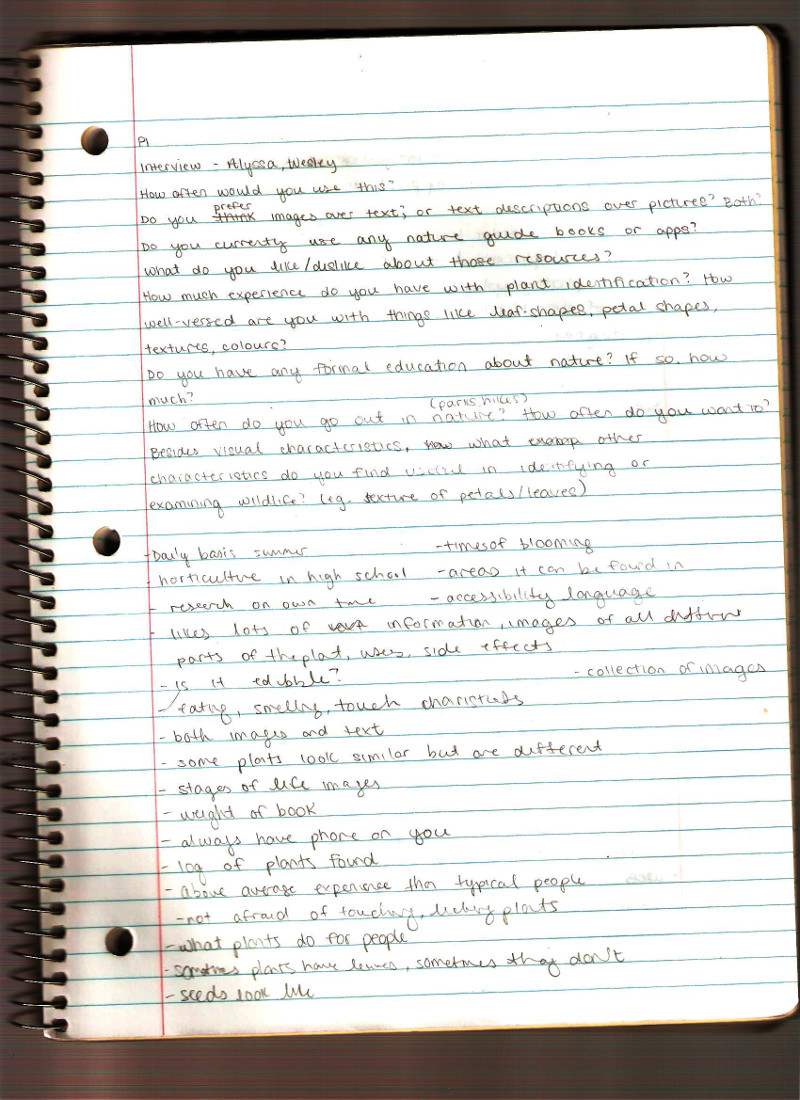 P1
Interview - Alyssa, Wesley
How often would you use this?
prefer
Do you think images over text; or text descriptions over pictures? Both?
Do you currently use any nature guide books or apps?
what do you like/dislike about those resources?
How much experience do you have with plant identification? How
well-versed are you with things like leaf shapes, petal shapes,
textures, colours?
Do you have any formal education about nature? If so, how
much?
(parks, hikes)
How often do you go out in nature? How often do you want to?
Besides visual characteristics, how what other
characteristics do you find useful in identifying or
examining wildlife? (eg. texture of petals/leaves)
-Daily basis summer -times of blooming
horticulture in high school -areas it can be found in
- research on own time - accessibility language
- likes lots of information, images of all different
parts of the plat, uses, side effects
- is it edibble? - collection of images
- eating, smelling, touch
- both images and text
- some plants look similar but are different
- stages of life images
- weight of book
- always have phone on you
- log of plants found
- above average experience than typical people
- not afraid of touching, licking plants
- what plants do for people
- sometimes plants have leaves, sometimes they don't
- seeds look like